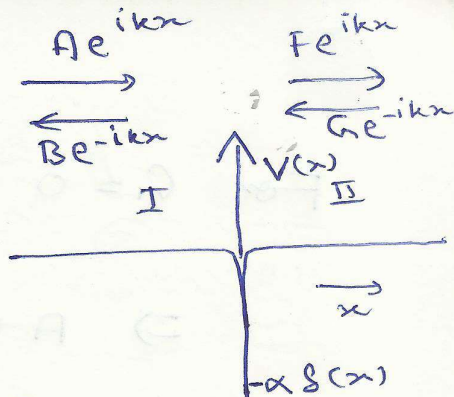 Ae^{ikx} Fe^{ikx}
Be^{-ikx} Ge^{-ikx}
V(x)
I II
x
-αδ(x)